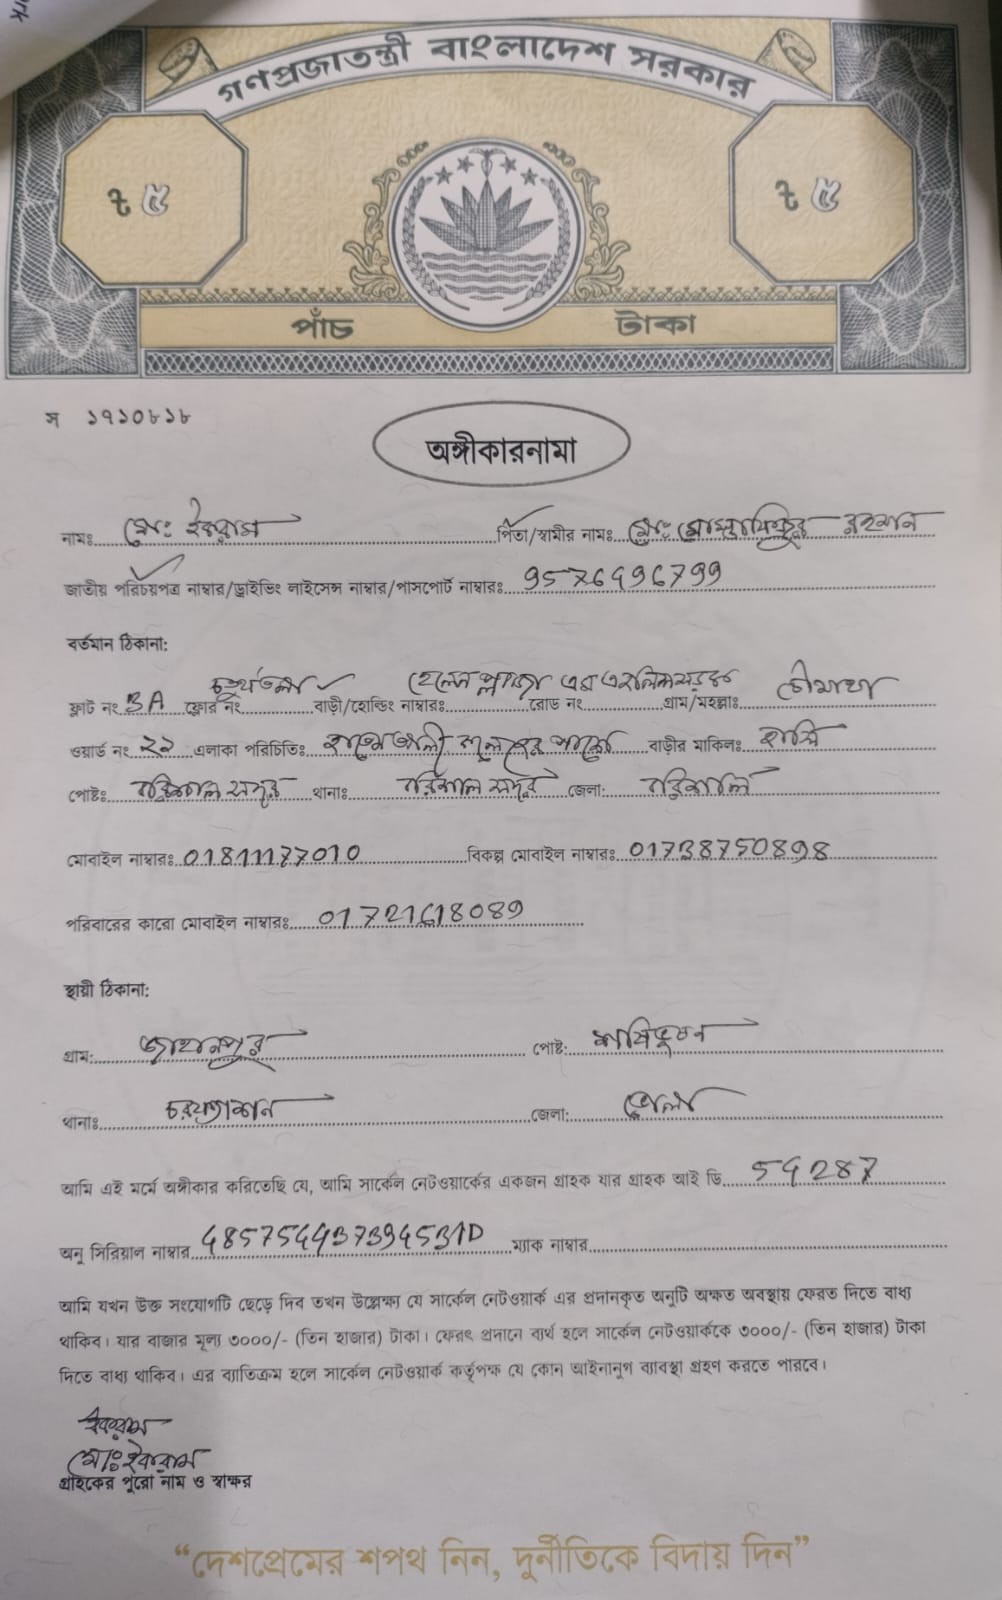 গণপ্রজাতন্ত্রী বাংলাদেশ সরকার
৳ ৫ ৳ ৫
পাঁচ টাকা
স ১৭১০৮১৮
অঙ্গীকারনামা
নামঃ মোঃ ইকরাম পিতা/স্বামীর নাম: মোঃ মোস্তাফিজুর রহমান
জাতীয় পরিচয়পত্র নাম্বার/ড্রাইভিং লাইসেন্স নাম্বার/পাসপোর্ট নাম্বারঃ 9576496799
বর্তমান ঠিকানা:
ফ্লাট নং 3A ফ্লোর নং চতুর্থতলা বাড়ী/হোল্ডিং নাম্বারঃ রোড নং গ্রাম/মহল্লাঃ চৌমাথা
ওয়ার্ড নং ২২ এলাকা পরিচিতিঃ বাড়ীর মাকিলঃ
পোষ্টঃ বরিশাল সদর থানাঃ বরিশাল সদর জেলা: বরিশাল
মোবাইল নাম্বারঃ 01811177010 বিকল্প মোবাইল নাম্বারঃ 01738750898
পরিবারের কারো মোবাইল নাম্বারঃ 01721618089
স্থায়ী ঠিকানা:
গ্রাম: জাহানপুর পোষ্ট: শশিভূষন
থানাঃ চরফ্যাশন জেলা: ভোলা
আমি এই মর্মে অঙ্গীকার করিতেছি যে, আমি সার্কেল নেটওয়ার্কের একজন গ্রাহক যার গ্রাহক আই ডি 54287
অনু সিরিয়াল নাম্বার 485754437394531D ম্যাক নাম্বার
আমি যখন উক্ত সংযোগটি ছেড়ে দিব তখন উল্লেক্ষ্য যে সার্কেল নেটওয়ার্ক এর প্রদানকৃত অনুটি অক্ষত অবস্থায় ফেরত দিতে বাধ্য
থাকিব। যার বাজার মূল্য ৩০০০/- (তিন হাজার) টাকা। ফেরৎ প্রদানে ব্যর্থ হলে সার্কেল নেটওয়ার্ককে ৩০০০/- (তিন হাজার) টাকা
দিতে বাধ্য থাকিব। এর ব্যাতিক্রম হলে সার্কেল নেটওয়ার্ক কর্তৃপক্ষ যে কোন আইনানুগ ব্যাবস্থা গ্রহণ করতে পারবে।
ইকরাম
মোঃ ইকরাম
গ্রাহকের পুরো নাম ও স্বাক্ষর
“দেশপ্রেমের শপথ নিন, দুর্নীতিকে বিদায় দিন”